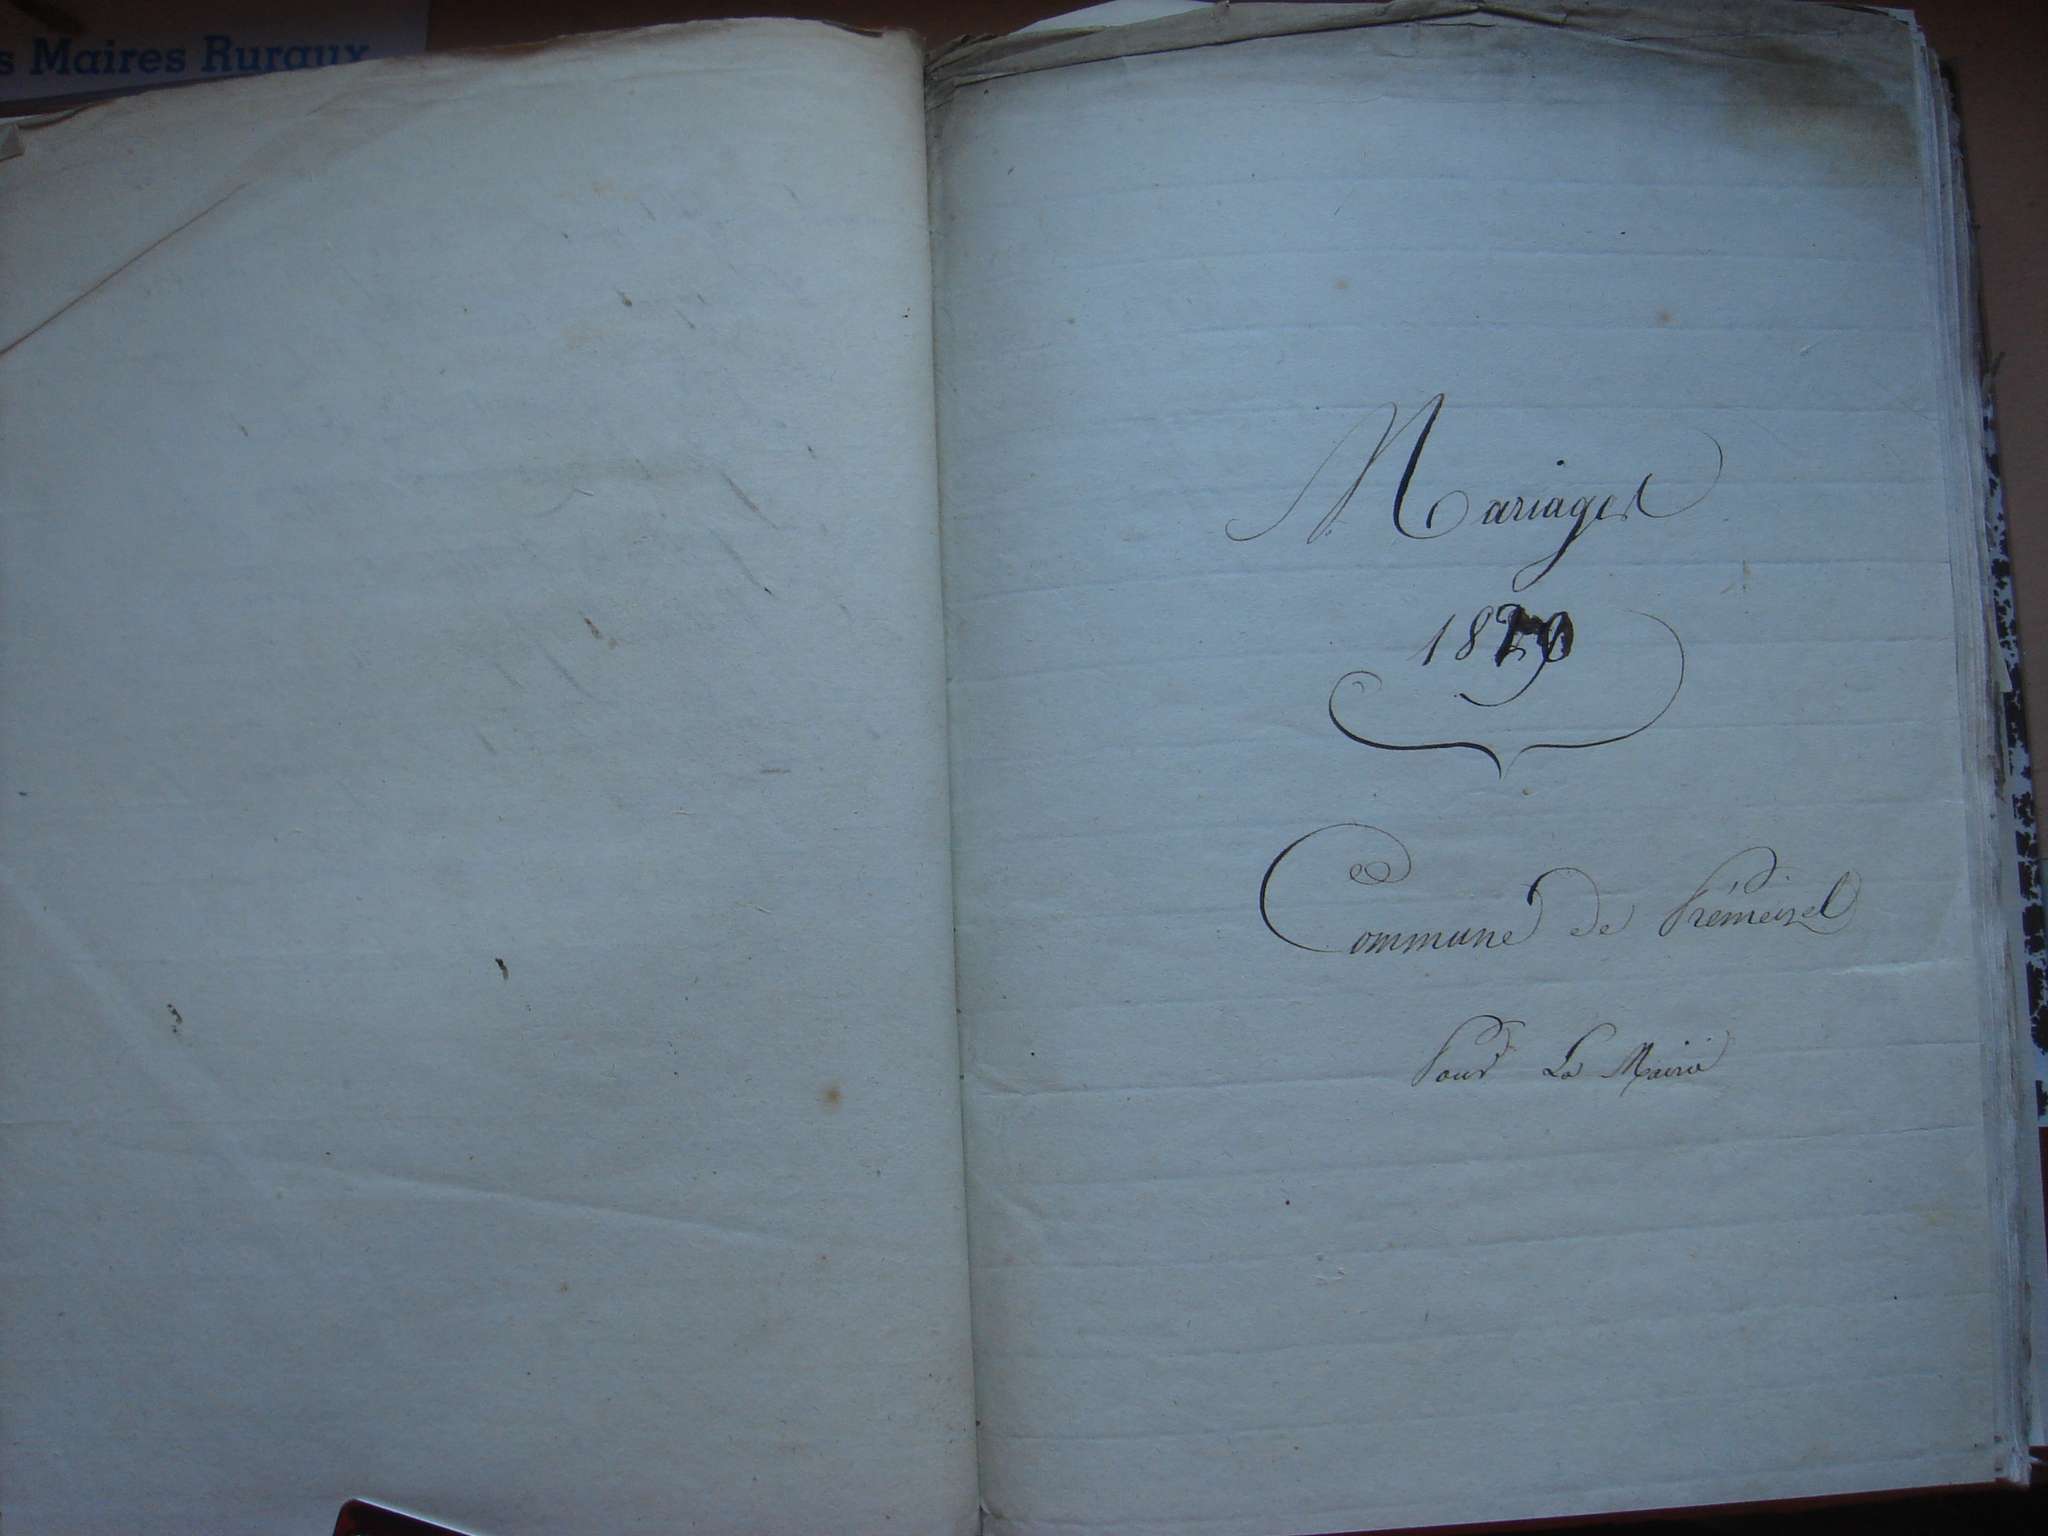 s Maires Ruraux
Mariages
Commune de Prémeizel
Pour La Mairie